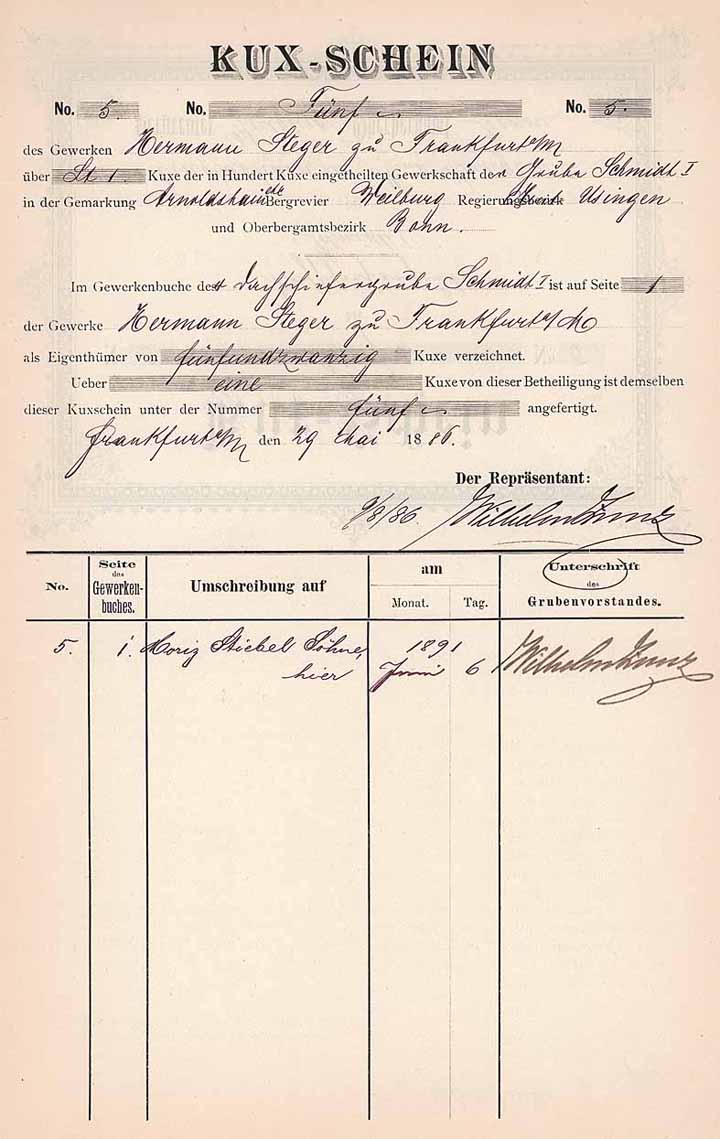 KUX-SCHEIN
No. 5. No. Fünf No. 5.
des Gewerken Hermann Steger zu Frankfurt a/M
über St 1. Kuxe der in Hundert Kuxe eingetheilten Gewerkschaft der Grube Schmidt I
in der Gemarkung Arnoldshain etc Bergrevier Weilburg Regierungsbezirk Usingen
und Oberbergamtsbezirk Bonn.
Im Gewerkenbuche der Dachschiefergrube Schmidt I ist auf Seite 1
der Gewerke Hermann Steger zu Frankfurt a/M
als Eigenthümer von fünfundzwanzig Kuxe verzeichnet.
Ueber eine Kuxe von dieser Betheiligung ist demselben
dieser Kuxschein unter der Nummer fünf angefertigt.
Frankfurt a/M den 29 Mai 1886.
Der Repräsentant:
9/8/86. Wilhelm
No. Seite des Gewerken-buches. Umschreibung auf am Monat. Tag. Unterschrift des Grubenvorstandes.
5. 1. Moriz Stiebel Söhne, 1891 Wilhelm
hier Juni 6